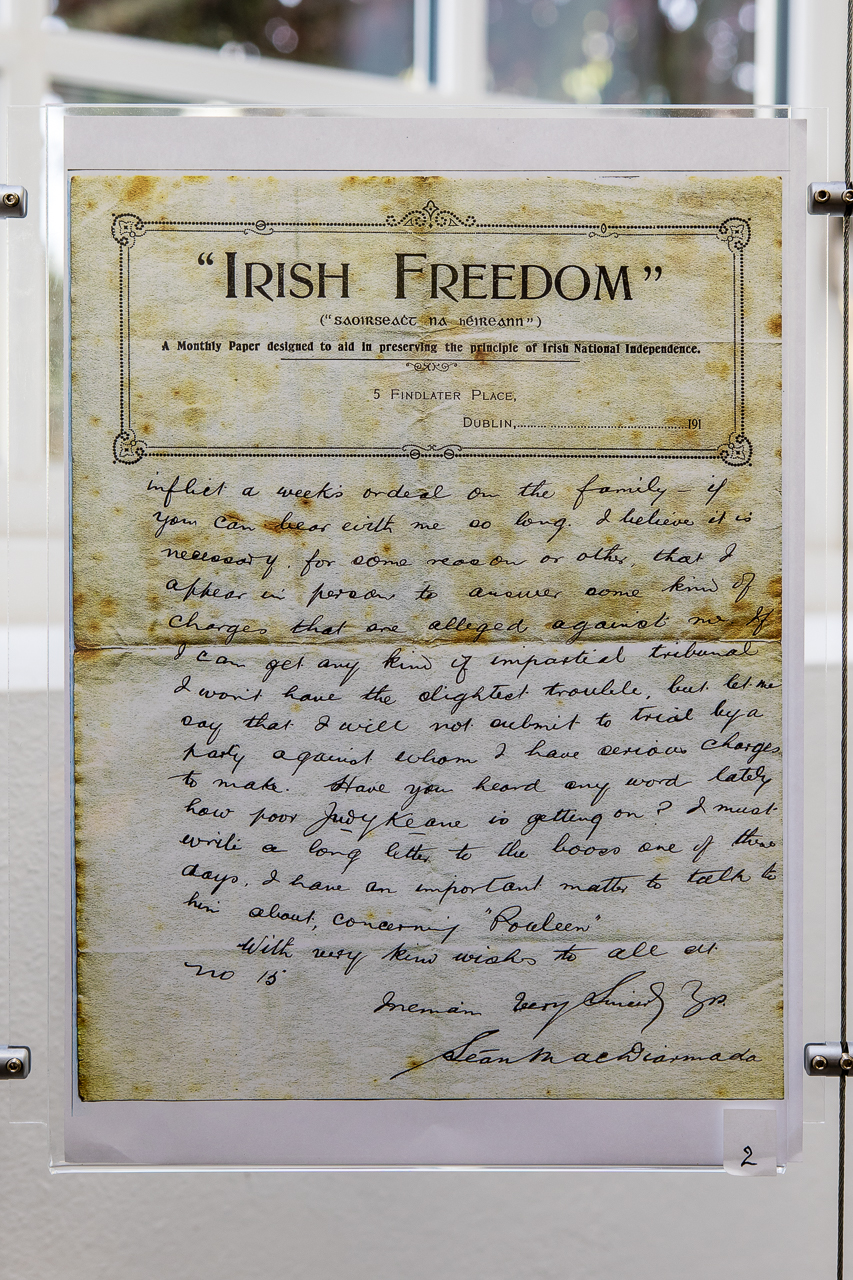 "IRISH FREEDOM"
("saoirseaċt na hÉireann")
A Monthly Paper designed to aid in preserving the principle of Irish National Independence.
5 FINDLATER PLACE,
DUBLIN,..............................191
inflict a week's ordeal on the family – if
you can bear with me so long. I believe it is
necessary. for some reason or other, that I
appear in person to answer some kind of
charges that are alleged against me. If
I can get any kind of impartial tribunal
I won't have the slightest trouble, but let me
say that I will not submit to trial by a
party against whom I have serious charges
to make. Have you heard any word lately
how poor Judy Keane is getting on? I must
write a long letter to the boss one of these
days. I have an important matter to talk to
him about, concerning "Pouleen"
With very kind wishes to all at
no 15
I remain Very Sincerely Yrs.
Seán MacDiarmada
2